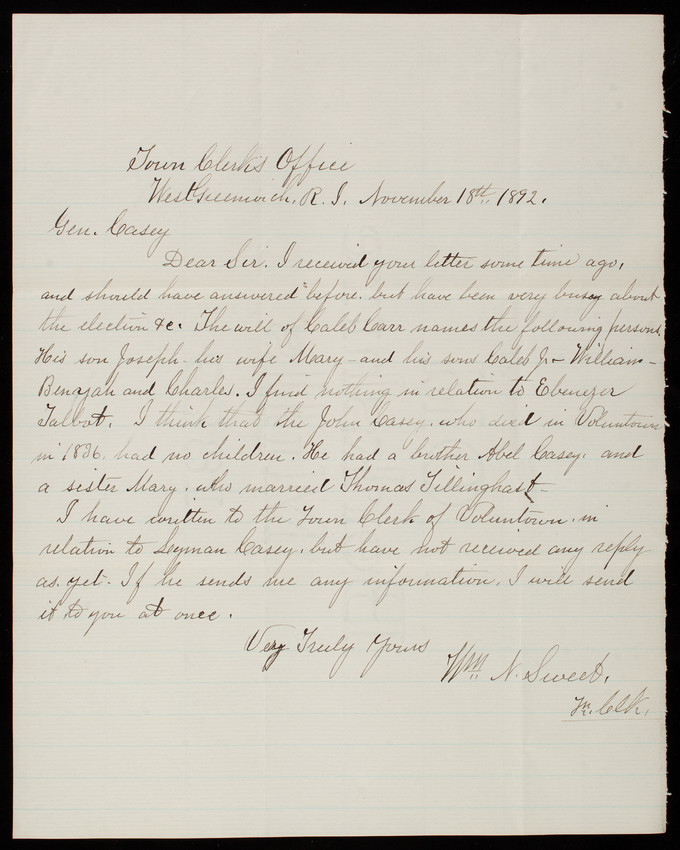 Town Clerk's Office
West Greenwich, R. I. November 18th, 1892.
Gen. Casey
Dear Sir. I received your letter some time ago,
and should have answered before. but have been very busy about
the election &c. The will of Caleb Carr names the following persons.
His son Joseph - his wife Mary - and his sons Caleb Jr - William -
Benajah and Charles. I find nothing in relation to Ebenezer
Talbot. I think that the John Casey. who died in Voluntown
in 1836. had no children. He had a brother Abel Casey. and
a sister Mary. who married Thomas Tillinghast -
I have written to the Town Clerk of Voluntown. in
relation to Lyman Casey. but have not received any reply
as yet. If he sends me any information. I will send
it to you at once.
Very Truly Yours
Wm N. Sweet,
Tn. Clk.